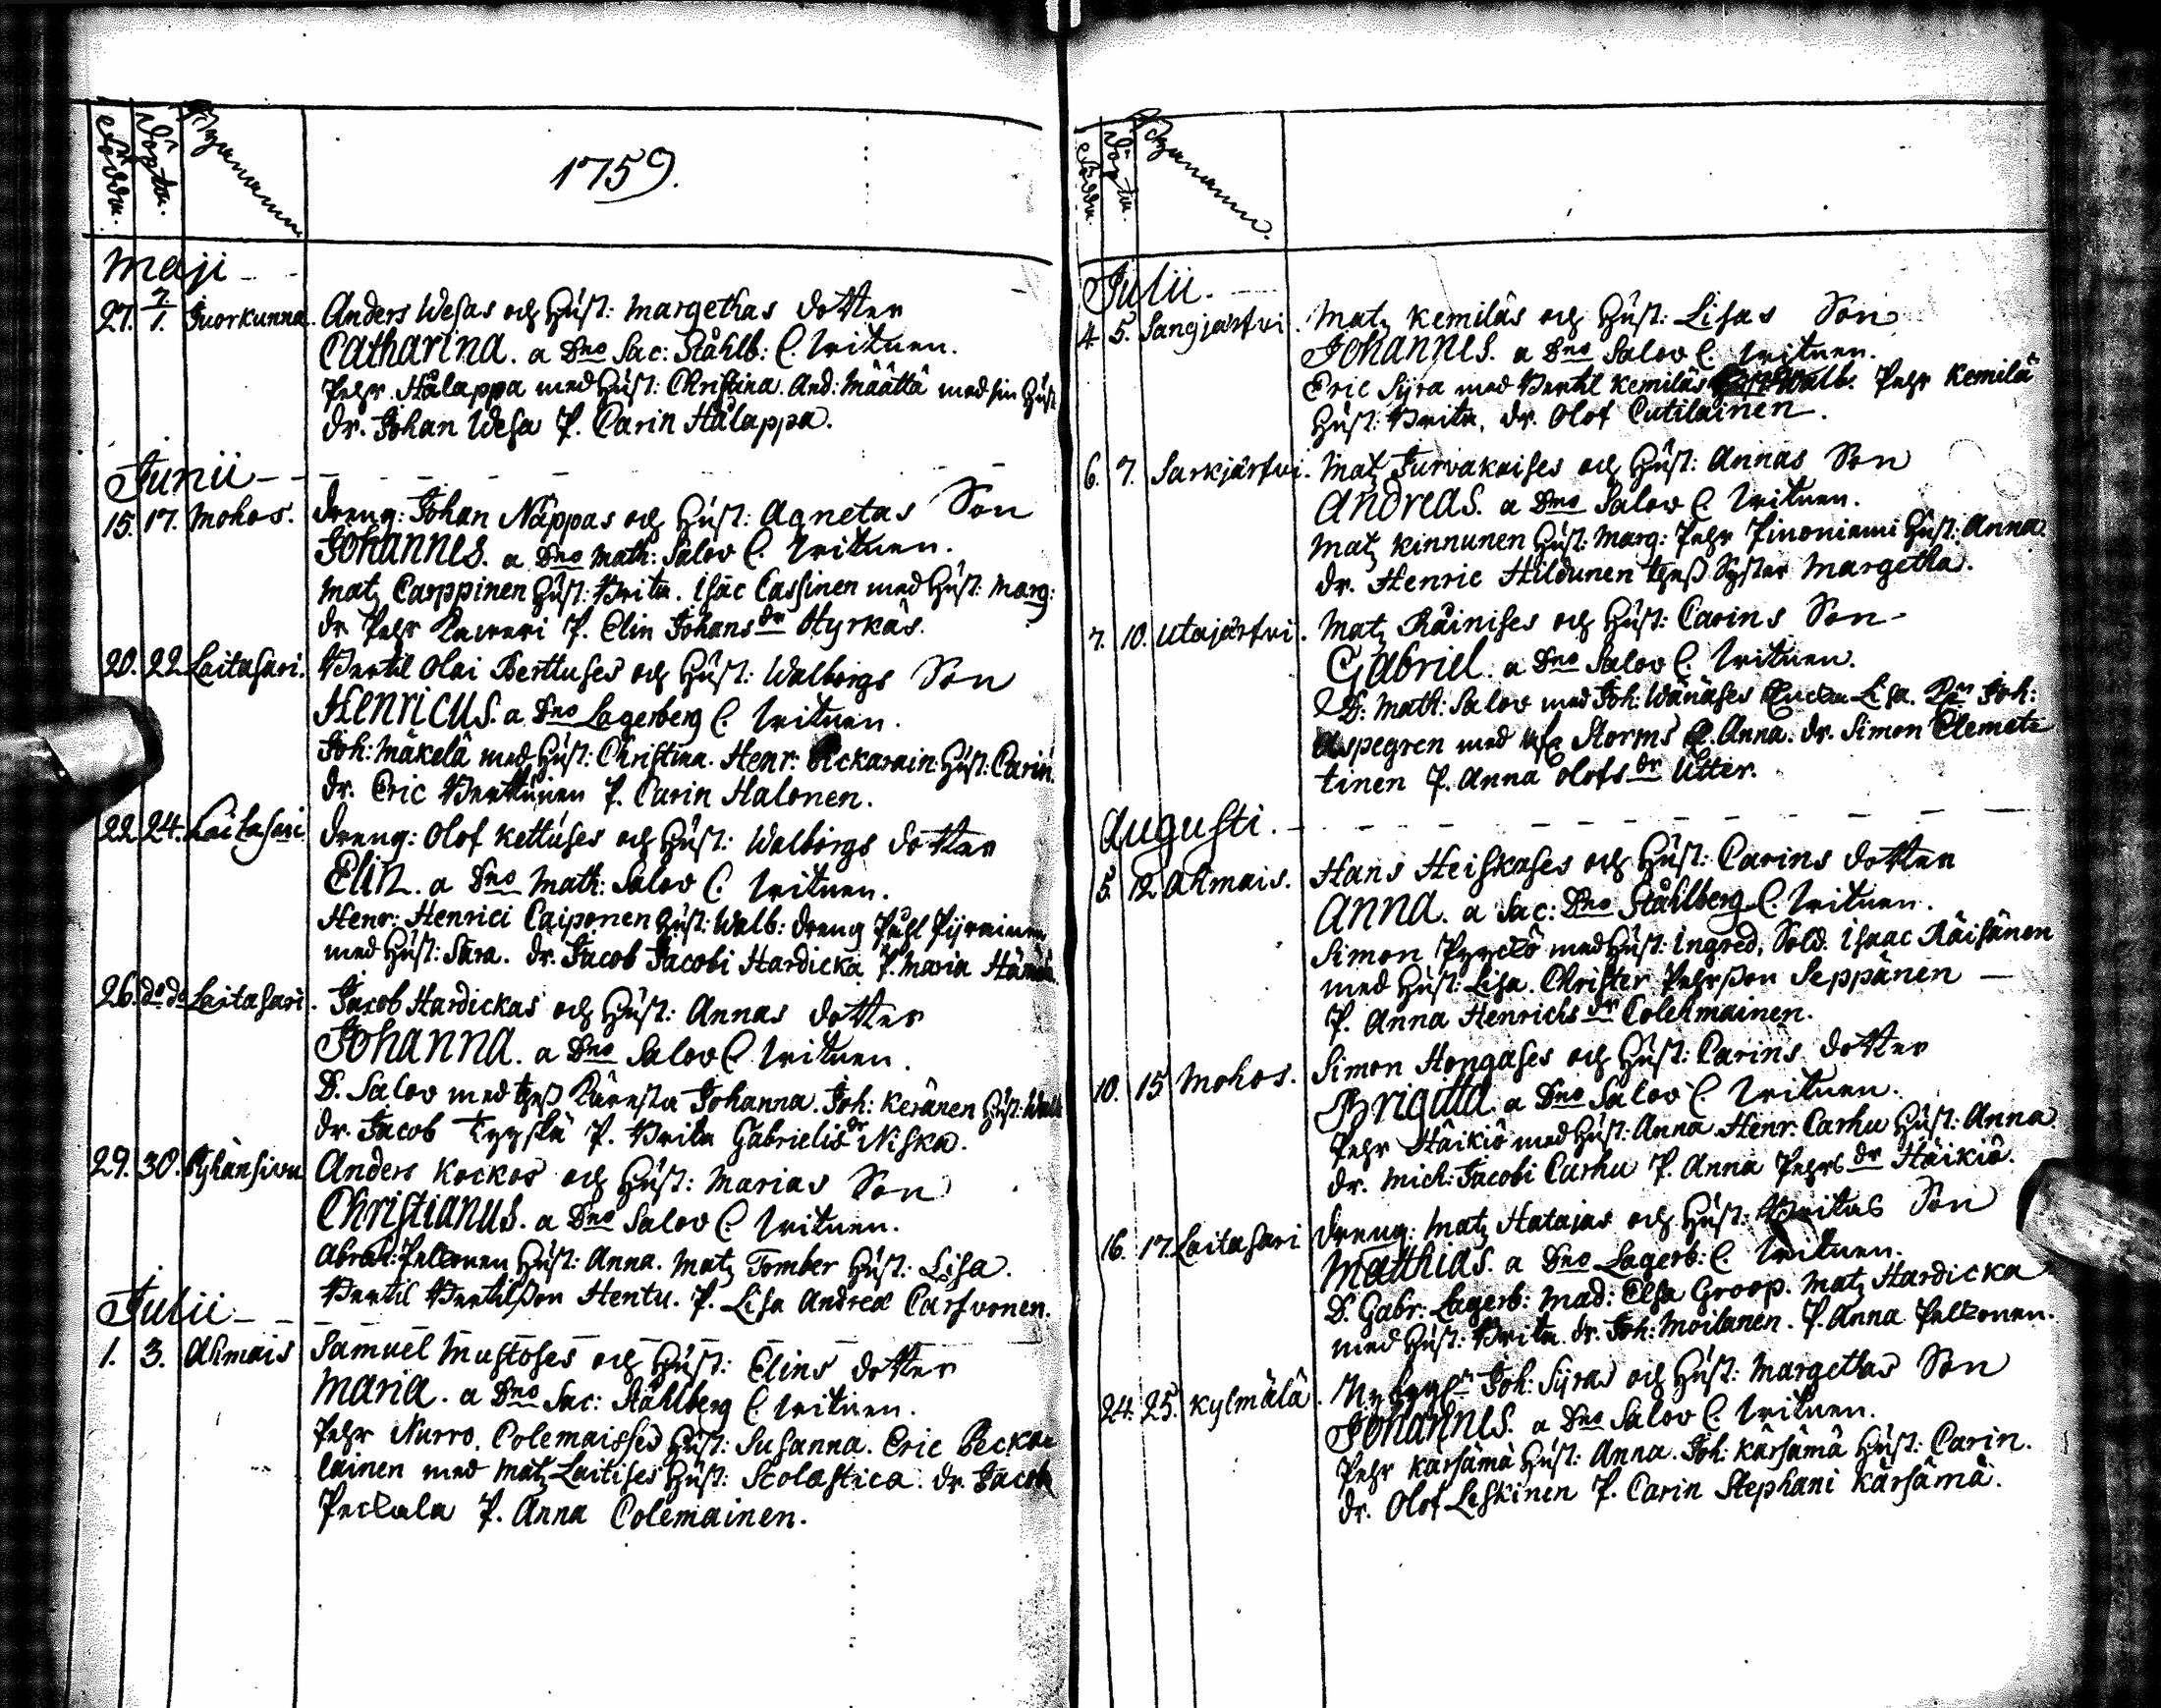 Födde.
Döpte.
Bynamn
1759.
Maji
27. 7/1. Juorkunna. Anders Wesas och Hust: Margethas dotter
Catharina. a Dno Sac: Ståhlb: C. Witnen.
Pehr Hålappa med Hust: Christina. And: Määttä med sin Hust
dr. Johan Wesa P. Carin Hålappa.
Junii
15. 17. Mohos. dreng: Johan Näppas och Hust: Agnetas Son
Johannes. a Dno Math: Salov C. Witnen.
Matz Carppinen Hust: Brita. Isac Cassinen med Hust: Marg:
dr Pehr P. Elin Johans dr Hyrkäs.
20. 22 Laitasari. Bertil Olai Bertluses och Hust: Walborgs Son
Henricus. a Dno Lagerberg C. Witnen.
Joh: Mäkelä med Hust: Christina. Henr: Hust: Carin
dr. Eric P. Carin Halonen.
22 24. Laitasari dreng: Olof Kettuses och Hust: Walborgs dotter
Elin. a Dno Math: Salov C. Witnen.
Henr: Henrici Caiponen Hust: Walb: dreng Påhl Pyrainen
med Hust: Sara. dr. Jacob Jacobi Hardicka P. Maria
26. do do Laitasari. Jacob Hardickas och Hust: Annas dotter
Johanna. a Dno Salov C. Witnen.
D. Salov med thess Käresta Johanna. Joh: Keränen Hust: Walb
dr. Jacob P. Brita Gabrielis dr Niska.
29. 30. Pyhänsivu Anders Kockos och Hust: Marias Son
Christianus. a Dno Salov C. Witnen.
Abrah: Pelkonen Hust: Anna. Matz Tomber Hust: Lisa.
Bertil Bertilsson Hentu. P. Lisa Andreæ Carfvonen.
Julii
1. 3. Ahmais Samuel Mustoses och Hust: Elins dotter
Maria. a Dno Sac: Ståhlberg C. Witnen.
Pehr Nurro. Colemaisses Hust: Susanna. Eric Beckae
lainen med Matz Laitises Hust: Scolastica. dr. Jacob
Peckala P. Anna Colemainen.
Födde.
Döpte.
Bynamn.
Julii.
4 5. Sangjärfvi. Matz Kemiläs och Hust: Lisas Son
Johannes. a Dno Salov C. Witnen.
Eric Syra med Bertil Kemiläs Walb. Pehr Kemilä
Hust: Brita, dr. Olof Cutilainen.
6. 7. Sarkjärfvi. Matz Turvakaises och Hust: Annas Son
Andreas. a Dno Salov C. Witnen.
Matz Kinnunen Hust: Marg: Pehr Pinoniemi Hust: Anna
dr. Henric Hildunen thess Syster Margetha.
7. 10. Utajärfvi. Matz Räinises och Hust: Carins Son
Gabriel. a Dno Salov C. Witnen.
D: Math: Salov med Joh: Wänäses Encka Lisa. Joh:
Aspegren med Storms Anna. dr. Simon Clemete
tinen P. Anna Olofs dr Utter.
Augusti.
5. 12. Ahmais. Hans Heiskases och Hust: Carins dotter
Anna. a Sac: Dno Ståhlberg C. Witnen.
Simon Pyyckö med Hust: Ingred, Sold. Isaac Räisänen
med Hust: Lisa. Christer Pehrsson Seppänen
P. Anna Henrichs dr Colehmainen.
10. 15 Mohos. Simon Hongases och Hust: Carins dotter
Brigitta a Dno Salov C. Witnen.
Pehr Häikiö med Hust: Anna Henr: Carhu Hust: Anna
dr. Mich: Jacobi Carhu P. Anna Pehrs dr Häikiö.
16. 17. Laitasari dreng: Matz Hatajas och Hust: Britas Son
Matthias. a Dno Lagerb: C. Witnen.
D. Gabr: Lagerb: Mad: Elsa Groop. Matz Hardicka
med Hust: Brita. dr. Joh: Moilanen. P. Anna Pelkonen.
24. 25. Kylmälä. Joh: Syras och Hust: Margethas Son
Johannes. a Dno Salov C. Witnen.
Pehr Kärsämä Hust: Anna. Joh: Kärsämä Hust: Carin.
dr. Olof Leskinen P. Carin Stephani Kärsämä.